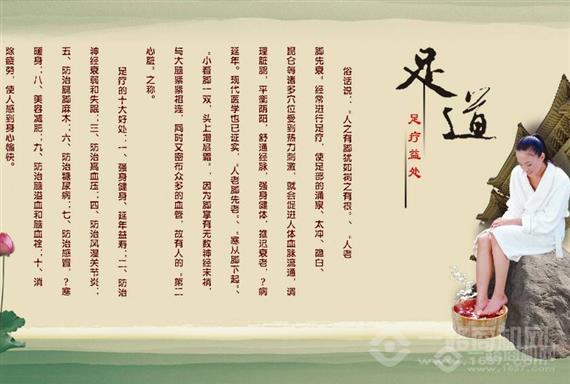 足道
足疗益处
俗话说："人之有脚犹如树之有根。"、"人老
脚先衰。经常进行足疗，使足部的涌泉、太冲、隐白、
昆仑等诸多穴位受到热力刺激，就会促进人体血脉流通，调
理脏腑，平衡阴阳，舒通经脉，强身健体，推迟衰老，?病
延年。现代医学也已证实，"人老脚先老"、"寒从脚下起"、
"小看脚一双，头上增层霜"。因为脚掌有无数神经末梢，
与大脑紧紧相连，同时又密布众多的血管，故有人的"第二
心脏"之称。
足疗的十大好处：一、强身健身、延年益寿；二、防治
神经衰弱和失眠；三、防治高血压；四、防治风湿关节炎；
五、防治腿脚麻木；六、防治糖尿病；七、防治感冒，?寒
暖身；八、美容减肥；九、防治脑溢血和脑血栓；十、消
除疲劳，使人感到身心愉快。
商机网
www.1637.com